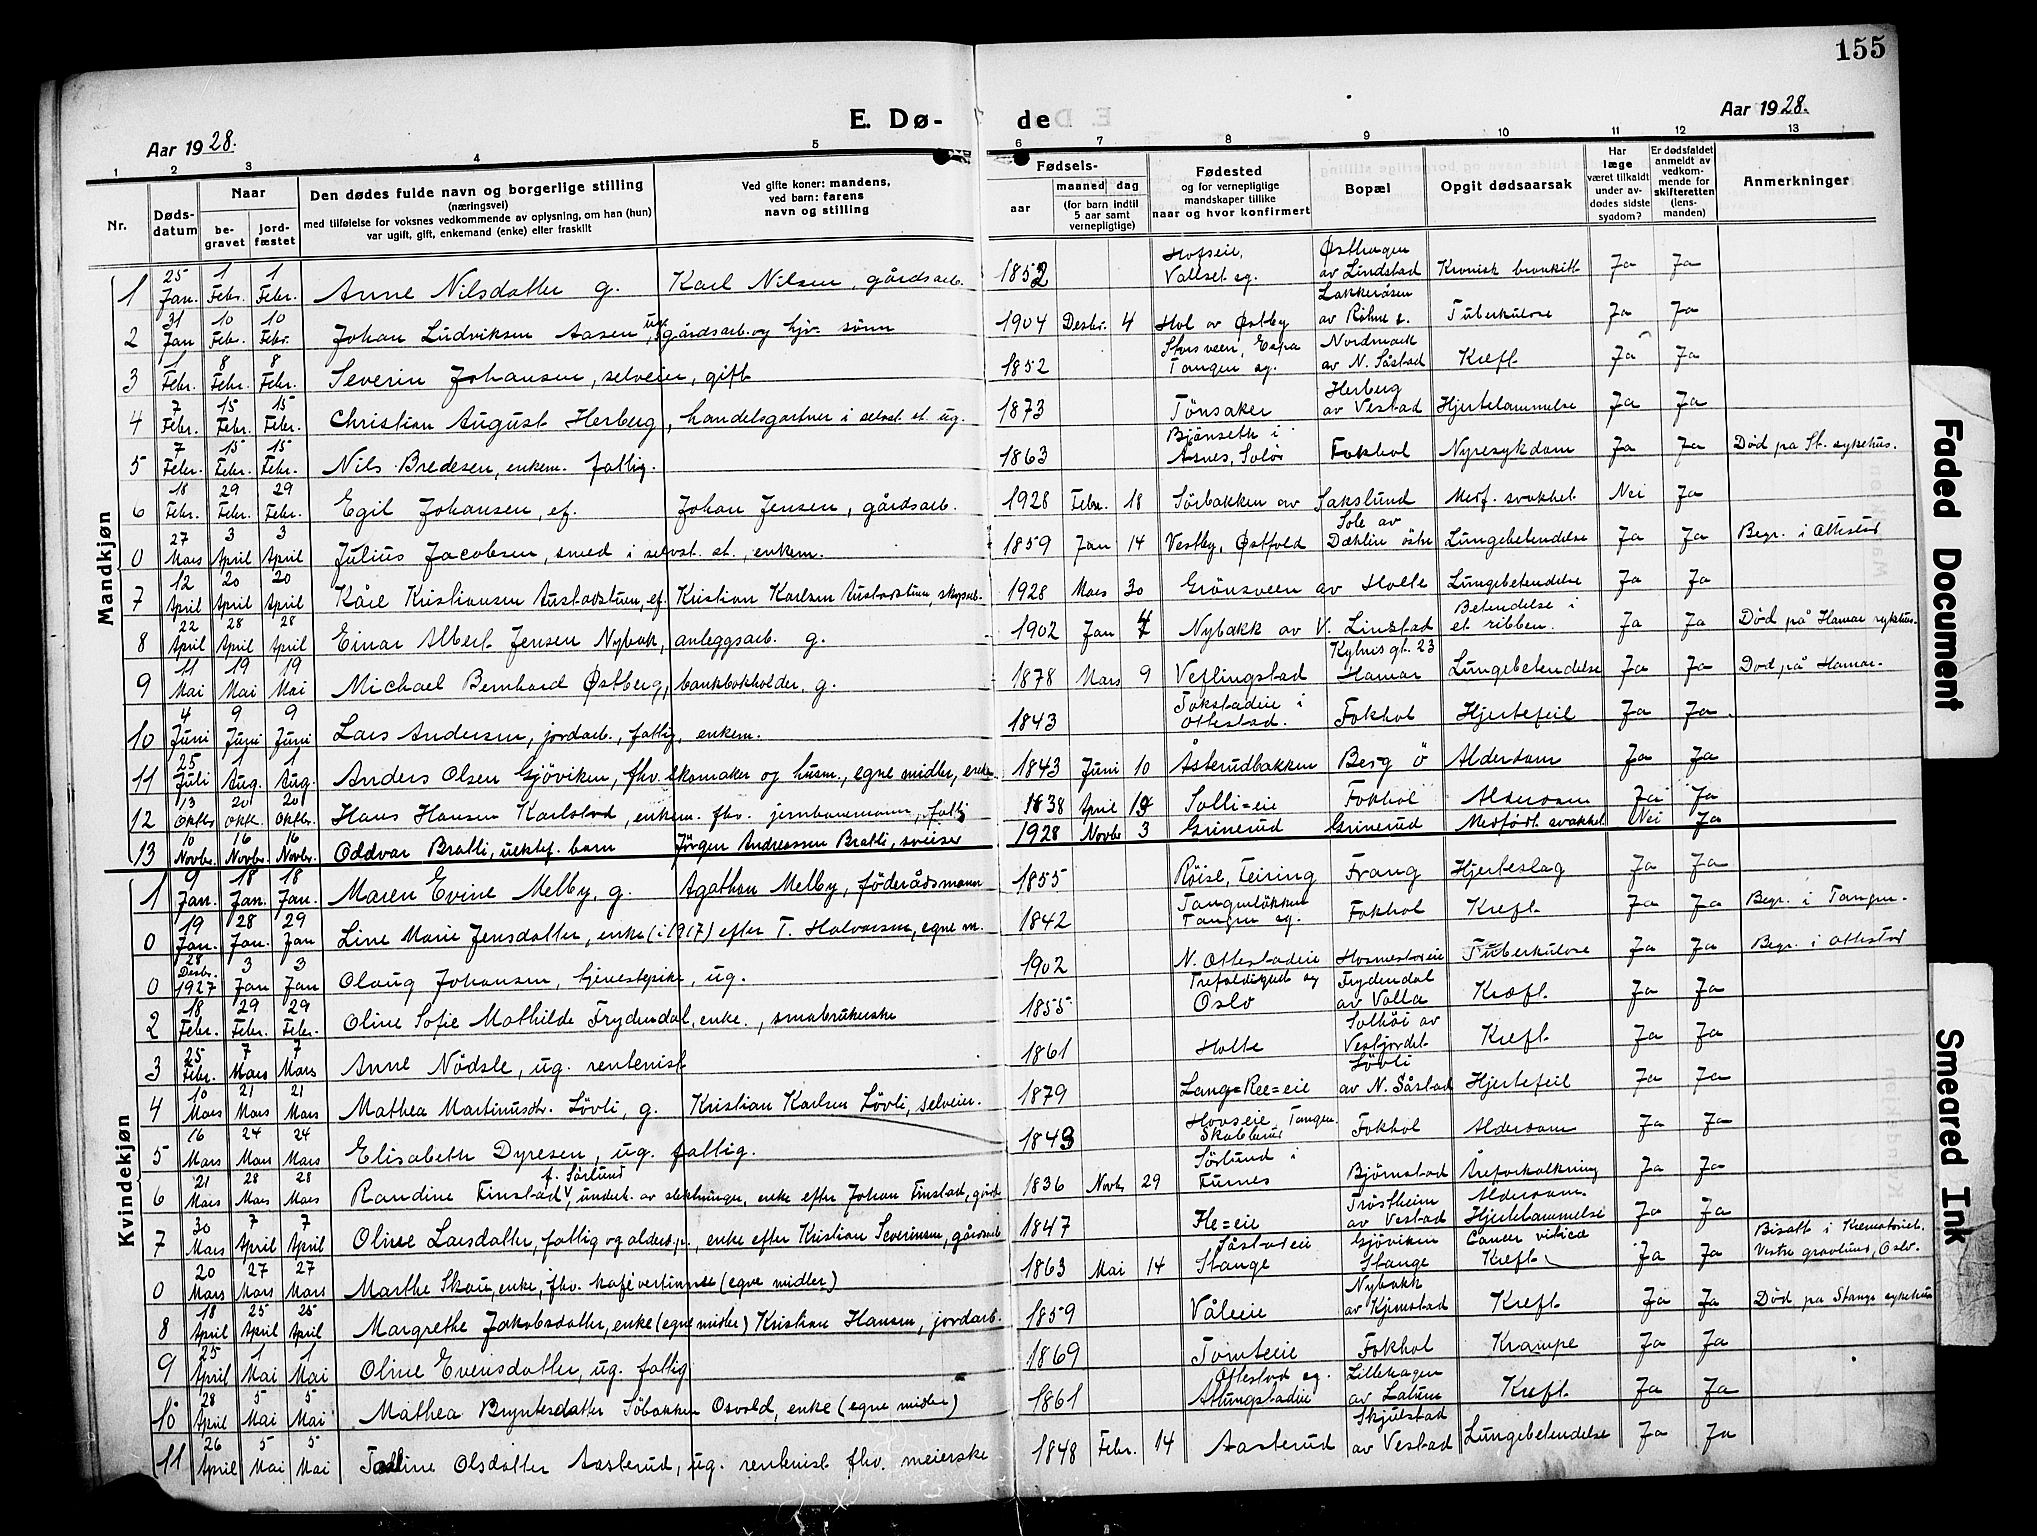 155
E. Døde
Aar 1928.
Aar 1928.
1 2 3 4 5 6 7 8 9 10 11 12 13
Nr.
Dødsdatum
Naar
begravet
jordfæstet
Den dødes fulde navn og borgerlige stilling
(næringsvei)
med tilføielse for voksnes vedkommende av oplysning, om han (hun)
var ugift, gift, enkemand (enke) eller fraskilt
Ved gifte koner: mandens,
ved barn: farens
navn og stilling
Fødsels-
aar
maaned dag
(for barn indtil
5 aar samt
vernepligtige)
Fødested
og for vernepligtige
mandskaper tillike
naar og hvor konfirmert
Bopæl
Opgit dødsaarsak
Har
læge
været tilkaldt
under avdødes sidste
sygdom?
Er dødsfaldet
anmeldt av
vedkommende for
skifteretten
(lensmanden)
Anmerkninger
Mandkjøn
1 25 Jan. 1 Febr. 1 Febr. Anne Nilsdatter g. Karl Nilsen, gårdsarb. 1852 Hofseie, Vallset sg. Østhagen av Lindstad Kronisk bronkitt Ja Ja
2 31 Jan 10 Febr. 10 Febr. Johan Ludviksen Aasen, ug. gårdsarb. og hjv. sønn 1904 Desbr. 4 Hol av Østby Lakkeråsen av Röhne Tuberkulose Ja Ja
3 1 Febr. 8 Febr. 8 Febr. Severin Johansen, selveier, gift 1852 Espa Tangen sg. Nordmark av N. Såstad Kreft Ja Ja
4 7 Febr. 15 Febr. 15 Febr. Christian August Herberg, handelsgartner i selvst. st. ug. 1873 Tönsaker Herberg av Vestad Hjertelammelse Ja Ja
5 7 Febr. 15 Febr. 15 Febr. Nils Bredesen, enkem. fattig. 1863 Bjönseth i Åsnes, Solör Fokhol Nyresykdom Ja Ja Död på St. sykehus.
6 18 Febr. 29 Febr. 29 Febr. Egil Johansen, ef. Johan Jensen, gårdsarb. 1928 Febr. 18 Sörbakken av Sakslund Medf. svakhet Nei Ja
0 27 Mars 3 April 3 April Julius Jacobsen, smed i selvst. st., enkem. 1859 Jan 14 Vestby, Østfold Sole av Dæhlin östre Lungebetendelse Ja Ja Begr. i Ottestad
7 12 April 20 April 20 April Kåre Kristiansen Austadstuen, ef. Kristian Karlsen Austadstuen, skogsarb. 1928 Mars 30 Grönsveen av Holte Lungebetendelse Ja Ja
8 22 April 28 April 28 April Einar Albert Jensen Nybakk, anleggsarb. g. 1902 Jan 4 Nybakk av V. Linstad Betendelse i et ribben. Ja Ja Död på Hamar sykehus.
9 11 Mai 19 Mai 19 Mai Michael Bernhard Østberg, bankbokholder, g. 1878 Mars 9 Veflingstad gt. 23 Hamar Lungebetendelse Ja Ja Död på Hamar.
10 4 Juni 9 Juni 9 Juni Lars Andersen, jordarb., fattig, enkem. 1843 Tokstadeie i Ottestad. Fokhol Hjertefeil Ja Ja
11 25 Juli 1 Aug. 1 Aug. Anders Olsen Gjöviken, fhv. skomaker og husm., egne midler, enkem. 1843 Juni 10 Åsterudbakken Berg ö Alderdom Ja Ja
12 13 Oktbr 20 Oktbr. 20 Oktbr. Hans Hansen Karlstad, enkem. fhv. jernbanemann, fattig 1838 April 19 Solli=eie Fokhol Alderdom Ja Ja
13 10 Novbr. 16 Novbr. 16 Novbr. Oddvar Bratli, uektef. barn Jörgen Andreassen Bratli, sveiser 1928 Novbr 3 Grinerud Grinerud Medfödt svakhet Nei Ja
Kvindekjøn
1 9 Jan. 18 Jan. 18 Jan. Maren Evine Melby, g. Agathon Melby, föderådsmann 1855 Röise, Feiring Frang Hjerteslag Ja Ja
0 19 Jan. 28 Jan. 29 Jan Line Marie Jensdatter, enke (i 1917) efter T. Halvorsen, egne m. 1842 Tangenlökken Tangen sg. Fokhol Kreft Ja Ja Begr. i Tangen.
0 28 Desbr. 1927 3 Jan 3 Jan Olaug Johansen, tjenestepike, ug. 1902 N. Ottestadeie Hosmestadeie Tuberkulose Ja Ja Begr. i Ottestad
2 18 Febr. 29 Febr. 29 Febr. Oline Sofie Mathilde Frydendal, enke., småbrukerske 1855 Trefoldighed sg Oslo Frydendal av Volla Kræft. Ja Ja
3 25 Febr. 7 Mars 7 Mars Anne Nödsle, ug. rentenist 1861 Holte Solhöi av Vestjordet Kreft. Ja Ja
4 10 Mars 21 Mars 21 Mars Mathea Martinusdtr. Lövli, g. Kristian Karlsen Lövli, selveier. 1879 Lang=Ree=eie Lövli av N. Såstad Hjertefeil Ja Ja
5 16 Mars 24 Mars 24 Mars Elisabeth Dyresen, ug. fattig. 1843 Hovseie Tangen Skabberud Fokhol Alderdom Ja Ja
6 21 Mars 28 Mars 28 Mars Randine Finstad f. Sörlund, underh. av slektninger, enke efter Johan Finstad, gårdbr 1836 Novbr 29 Sörlund i Furnes Bjørnstad Åreforkalkning Ja Ja
7 30 Mars 7 April 7 April Oline Larsdatter, fattig og alders.p., enke efter Kristian Severinsen, gårdsarb 1847 Fle=eie Tröstheim av Vestad Alderdom Hjertelammelse Ja Ja
0 20 Mars 27 Mars 27 Mars Marthe Skau, enke, fhv. kafévertinne (egne midler) 1863 Mai 14 Såstadeie Stange Gjöviken Stange Cancer Kreft Ja Ja Bisatt i Krematoriet. Vestre gravlund, Oslo.
8 18 April 25 April 25 April Margrethe Jakobsdatter, enke (egne midler) Kristian Hansen, jordarb. 1859 Våleie Nybakk av Kjemstad Kreft Ja Ja Död på Stange sykehus
9 25 April 1 Mai 1 Mai Oline Evensdatter, ug. fattig 1869 Tomteeie Fokhol Krampe Ja Ja
10 28 April 5 Mai 5 Mai Mathea Bryntesdatter Söbakken Osvold, enke (egne midler) 1861 Ottestad sg. Attungstadeie Lillehagen av Latum Kreft. Ja Ja
11 26 April 5 Mai 5 Mai Olsdatter Aasterud, ug. rentenist fhv. meierske 1848 Febr. 14 Aasterud Skjulstad av Vestad Lungebetendelse Ja Ja
Faded Document
Smeared Ink